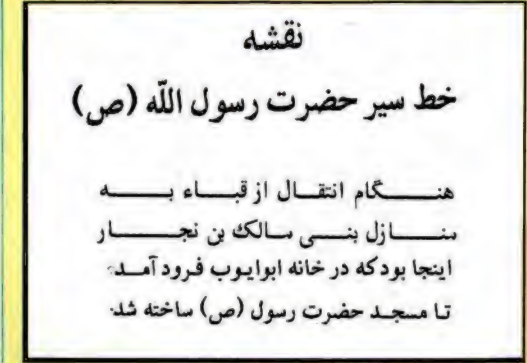 نقشه
خط سیر حضرت رسول اللّه (ص)
هنگام انتقال از قباء به
منازل بنی مالک بن نجار
اینجا بود که در خانه ابوایوب فرود آمد.
تا مسجد حضرت رسول (ص) ساخته شد.